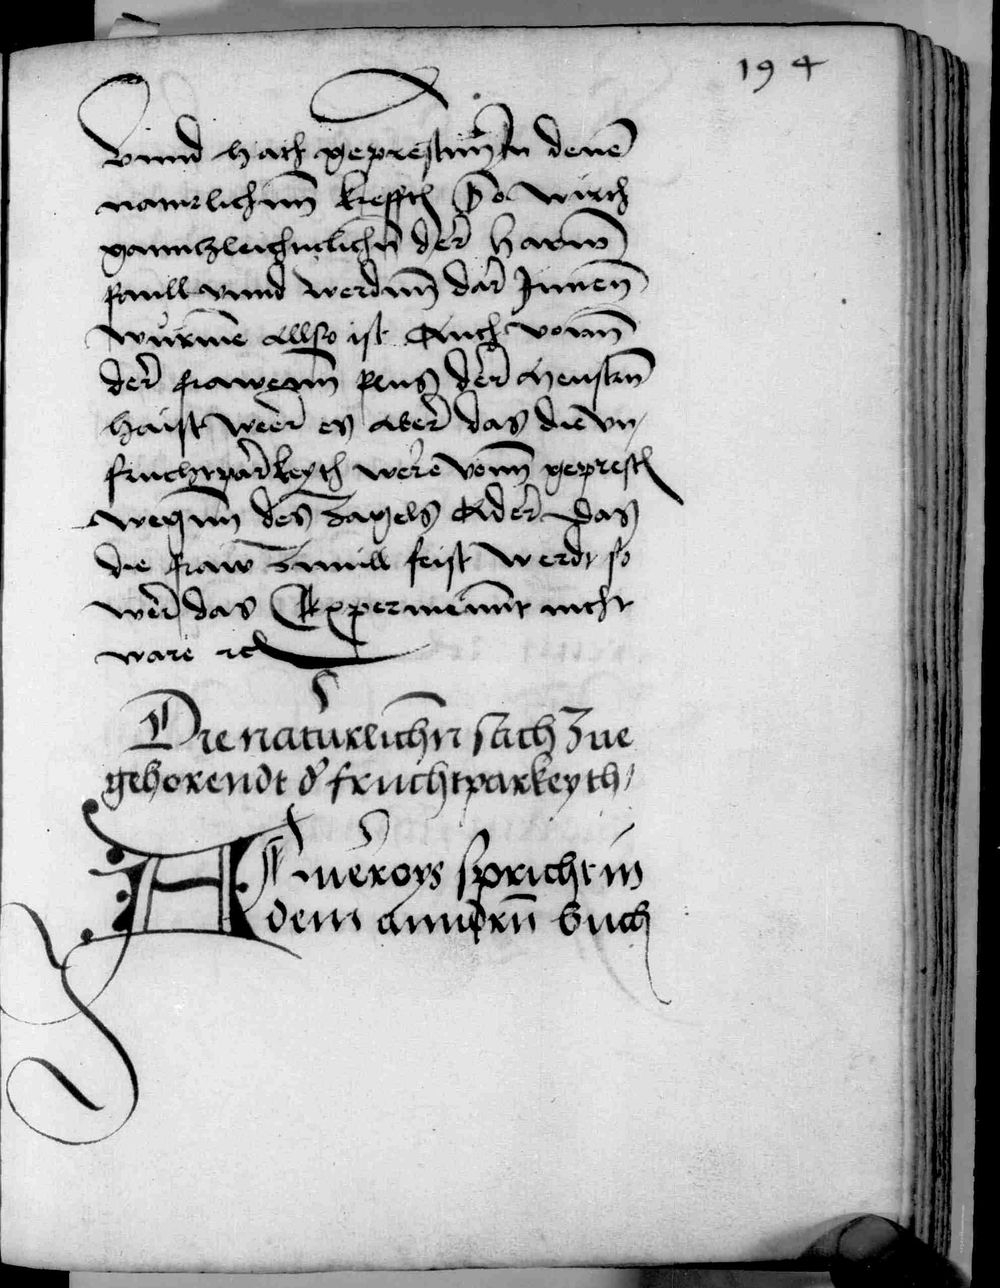 194
vnnd hath geprestnn jn denē
naturlichnn krefftē So wirth
ganntzleichnlichn̄ der̄ harm̄
faull vnnd werdnn̄ dar̄ Jnnen̄
wurme allso ist Auch vonn̄
der̄ frawenn plus der̄ menstrū
haist weer̄ es aber̄ das die vn/
fruchtpar̄keyth were vonn̄ geprestē
wegnn̄ des Zagels Ader̄ das
die fraw Zwuill feist werdt so
wer̄ das Experimennt nicht
ware ꝛc
Die naturlichn̄ sach Zue
gehorendt d' fruchtparkeyth/
Aueroys spricht in
dem anndrn̄ buch